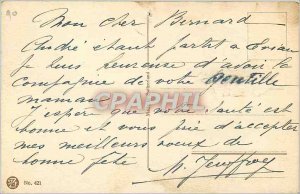 90
Mon cher Bernard
André étant partit a
je suis heureuse d'avoir la
compagnie de votre gentille
maman
J'espère que votre santé est
bonne et vous prie d'accepter
mes meilleurs voeux de
bonne fête
PRCARTE
No. 421